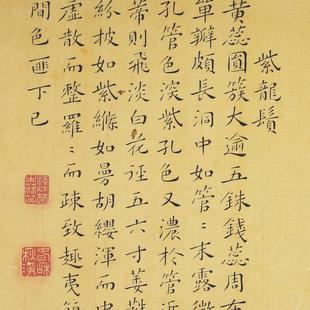 紫龍鬚
黃蕊圓簇大逾五銖錢蕊周布
單瓣頗長洞中如管〻末露微
孔管色淡紫孔色又濃於管近
蒂則飛淡白花逕五六寸萋
紛披如紫縧如曼胡纓渾而中
虛散而整羅〻而疎致趣夷簡
間色匪下已